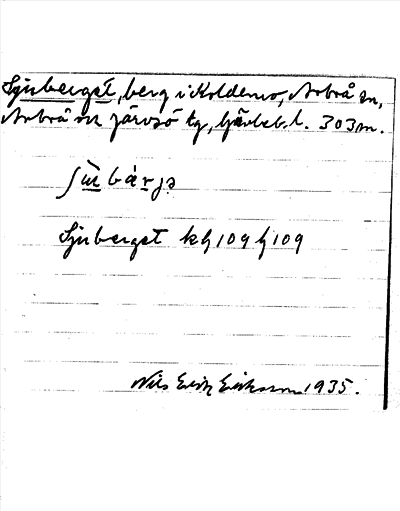 Sjuberget, berg i Koldemo, Arbrå sn,
Arbrå och Järvsö tg, Gävleb. l. 303 m.
ʃu̇bàrjə
Sjuberget kb 109 hj 109
Nils Erik Eriksson 1935.